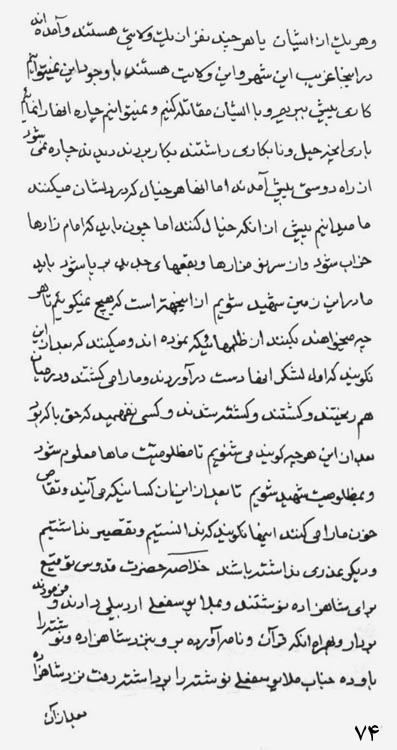 و هر یک از ایشان یا هر چند نفر از یک ولایتی هستند و آمده اند
در اینجا غریب این شهر و این ولایت هستند با وجود این نمیتوانیم
کاری پیش ببریم و با ایشان مقاتله کنیم و نمیتوانیم چاره اینها را نمائیم
باری آنچه حیل و نابکاری داشتند بکار بردند دیدند چاره نمی شود
از راه دوستی پیش آمدند اما اینها هر خیال که در دلشان میکنند
ما میدانیم پیش از آنکه خیال کنند اما چون باید که امام زارها
خراب شود و از سر نو مزارها و بقعهای جدید بر پا شود باید
ما در این زمین شهید شویم از اینجهة است که هیچ نمیگوئیم تا هر
چه میخواهند بکنند از ظلمهائیکه نموده اند و میکنند که بعد از این
نگویند که اول لشکر اینها دست در آوردند و ما را می کشتند و در میان
هم ریختند و کشتند و کشته شدند و کسی نفهمید که حق با که بود
بعد از این هر چه گویند می شنویم تا مظلومیت ماها معلوم شود
و بمظلومیت شهید شویم تا بعد از این آن کسانیکه می آیند و تقاص
خون ما را می کنند اینها نگویند که ندانستیم و تقصیر نداشتیم
و دیگر عذری نداشته باشند خلاصه حضرت قدوس توقیع
برای شاهزاده نوشتند و بملا یوسفعلی اردبیلی دادند و فرمودند
بردار و همراه آنکه قرآن و نامه آورده برو بنزد شاهزاده و نوشته را
باو ده جناب ملا یوسفعلی نوشته را برداشته رفت نزد شاهزاده
بعد از آن
۷۴